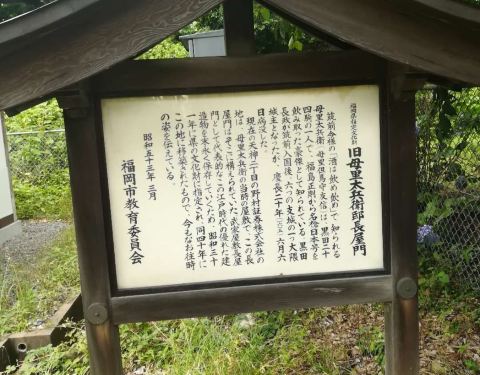 福岡県指定文化財
旧母里太兵衛邸長屋門
筑前今様の「酒は飲め飲め」で知られる
母里太兵衛（母里但馬守友信）は、黒田二十
四騎の一人で、福島正則から名槍日本号を
飲み取った豪傑として知られている。黒田
長政が筑前入国後、六つの支城の一つ大隈
城主となったが、慶長二十年（一六一五）六月六
日病没した。
現在の天神二丁目の野村証券株式会社の
地は、母里太兵衛の当時の屋敷で、この長
屋門はそこに構えられていた武家屋敷長屋
門として代表的なこの江戸時代の優れた建
造物を末永く保存していくため、昭和三十
一年に県の文化財に指定され、同四十年に
この地に移築されたもので、今もなお往時
の姿を伝えている。
昭和五十三年三月
福岡市教育委員会